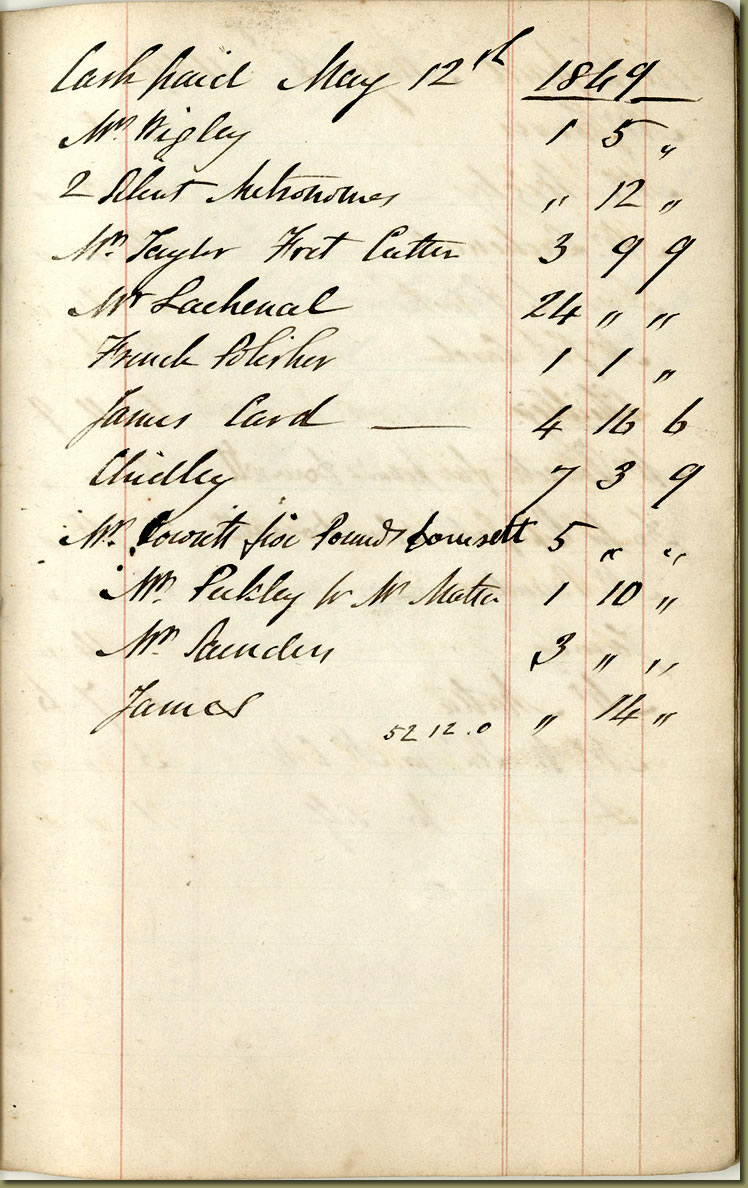 Cash paid May 12th 1849
Mr Wigley 1 5 "
2 Silent Metronomes " 12 "
Mr Taylor Fret Cutter 3 9 9
Mr Lachenal 24 " "
French Polisher 1 1 "
James Card — 4 16 6
Chidley 7 3 9
Mr five Pounds 5 " "
Mr Peckley for Mr 1 10 "
Mr Saunders 3 " "
James " 14 "
52 12.0